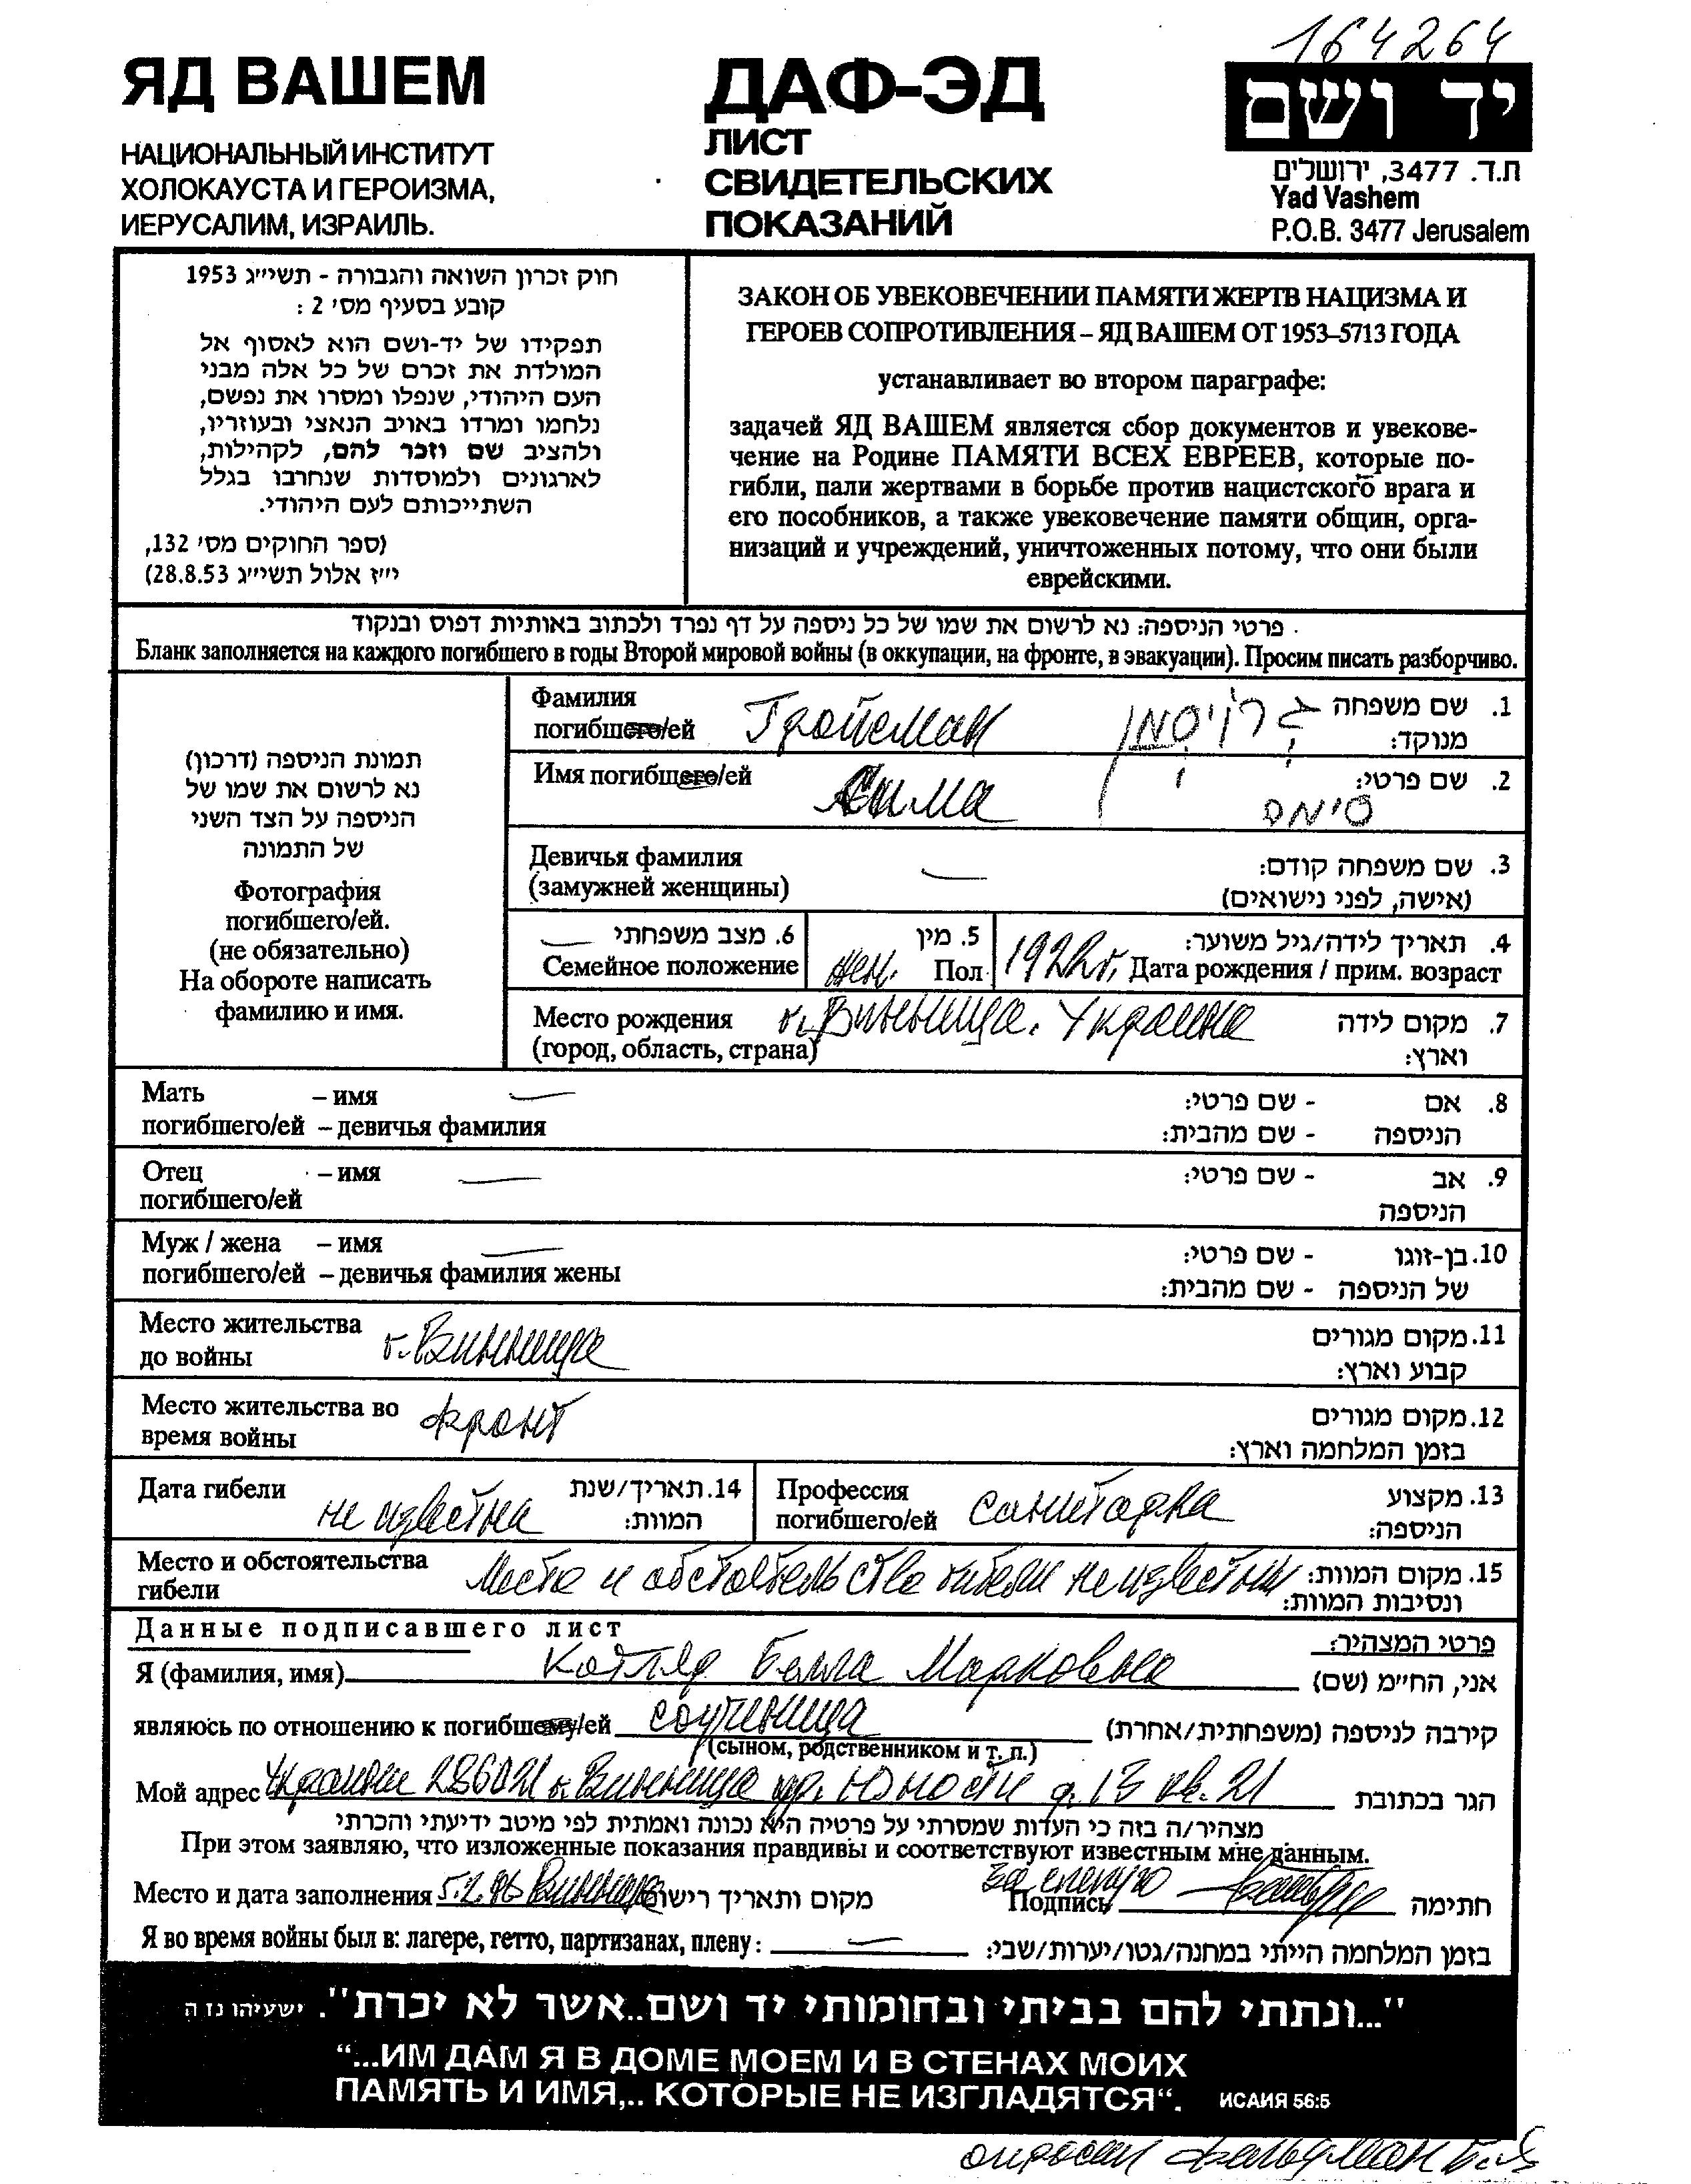 164264
ЯД ВАШЕМ
НАЦИОНАЛЬНЫЙ ИНСТИТУТ
ХОЛОКАУСТА И ГЕРОИЗМА,
ИЕРУСАЛИМ, ИЗРАИЛЬ.
ДАФ-ЭД
ЛИСТ
СВИДЕТЕЛЬСКИХ
ПОКАЗАНИЙ
יד ושם
ת.ד. 3477, ירושלים
Yad Vashem
P.O.B. 3477 Jerusalem
חוק זכרון השואה והגבורה - תשי״ג 1953
קובע בסעיף מס׳ 2 :
תפקידו של יד-ושם הוא לאסוף אל
המולדת את זכרם של כל אלה מבני
העם היהודי, שנפלו ומסרו את נפשם,
נלחמו ומרדו באויב הנאצי ובעוזריו,
ולהציב שם וזכר להם, לקהילות,
לארגונים ולמוסדות שנחרבו בגלל
השתייכותם לעם היהודי.
(ספר החוקים מס׳ 132,
י״ז אלול תשי״ג 28.8.53)
ЗАКОН ОБ УВЕКОВЕЧЕНИИ ПАМЯТИ ЖЕРТВ НАЦИЗМА И
ГЕРОЕВ СОПРОТИВЛЕНИЯ – ЯД ВАШЕМ ОТ 1953–5713 ГОДА
устанавливает во втором параграфе:
задачей ЯД ВАШЕМ является сбор документов и увекове-
чение на Родине ПАМЯТИ ВСЕХ ЕВРЕЕВ, которые по-
гибли, пали жертвами в борьбе против нацистского врага и
его пособников, а также увековечение памяти общин, орга-
низаций и учреждений, уничтоженных потому, что они были
еврейскими.
פרטי הניספה: נא לרשום את שמו של כל ניספה על דף נפרד ולכתוב באותיות דפוס ובנקוד
Бланк заполняется на каждого погибшего в годы Второй мировой войны (в оккупации, на фронте, в эвакуации). Просим писать разборчиво.
תמונת הניספה (דרכון)
נא לרשום את שמו של
הניספה על הצד השני
של התמונה
Фотография
погибшего/ей.
(не обязательно)
На обороте написать
фамилию и имя.
Фамилия
погибшего/ей Гройсман גרויסמן 1. שם משפחה
מנוקד:
Имя погибшего/ей Сима סימה 2. שם פרטי:
Девичья фамилия — 3. שם משפחה קודם:
(замужней женщины) (אישה, לפני נישואים)
— 6. מצב משפחתי 5. מין 4. תאריך לידה/גיל משוער:
Семейное положение жен. Пол 1922г. Дата рождения / прим. возраст
Место рождения г. Винница. Украина 7. מקום לידה
(город, область, страна) וארץ:
Мать – имя — - שם פרטי: 8. אם
погибшего/ей – девичья фамилия - שם מהבית: הניספה
Отец – имя — - שם פרטי: 9. אב
погибшего/ей הניספה
Муж / жена – имя — - שם פרטי: 10. בן-זוגו
погибшего/ей – девичья фамилия жены - שם מהבית: של הניספה
Место жительства г. Винница 11. מקום מגורים
до войны קבוע וארץ:
Место жительства во фронт 12. מקום מגורים
время войны בזמן המלחמה וארץ:
Дата гибели не известна 14. תאריך/שנת
המוות:
Профессия
погибшего/ей санитарка 13. מקצוע
הניספה:
Место и обстоятельства
гибели Место и обстоятельства гибели неизвестны 15. מקום המוות:
ונסיבות המוות:
Данные подписавшего лист פרטי המצהיר:
Я (фамилия, имя) Котляр Белла Марковна אני, החי״מ (שם)
являюсь по отношению к погибшему/ей соученица קירבה לניספה (משפחתית/אחרת)
(сыном, родственником и т. п.)
Мой адрес Украина 286021 г. Винница пр. Юности д. 13 кв. 21 הגר בכתובת
מצהיר/ה בזה כי העדות שמסרתי על פרטיה היא נכונה ואמתית לפי מיטב ידיעתי והכרתי
При этом заявляю, что изложенные показания правдивы и соответствуют известным мне данным.
Место и дата заполнения 5.2.96 Винница מקום ותאריך רישום Подпись חתימה
Я во время войны был в: лагере, гетто, партизанах, плену: — בזמן המלחמה הייתי במחנה/גטו/יערות/שבי:
"...ונתתי להם בביתי ובחומותי יד ושם..אשר לא יכרת". ישעיהו נז ה
“...ИМ ДАМ Я В ДОМЕ МОЕМ И В СТЕНАХ МОИХ
ПАМЯТЬ И ИМЯ,.. КОТОРЫЕ НЕ ИЗГЛАДЯТСЯ“. ИСАИЯ 56:5
опросил Фельдман